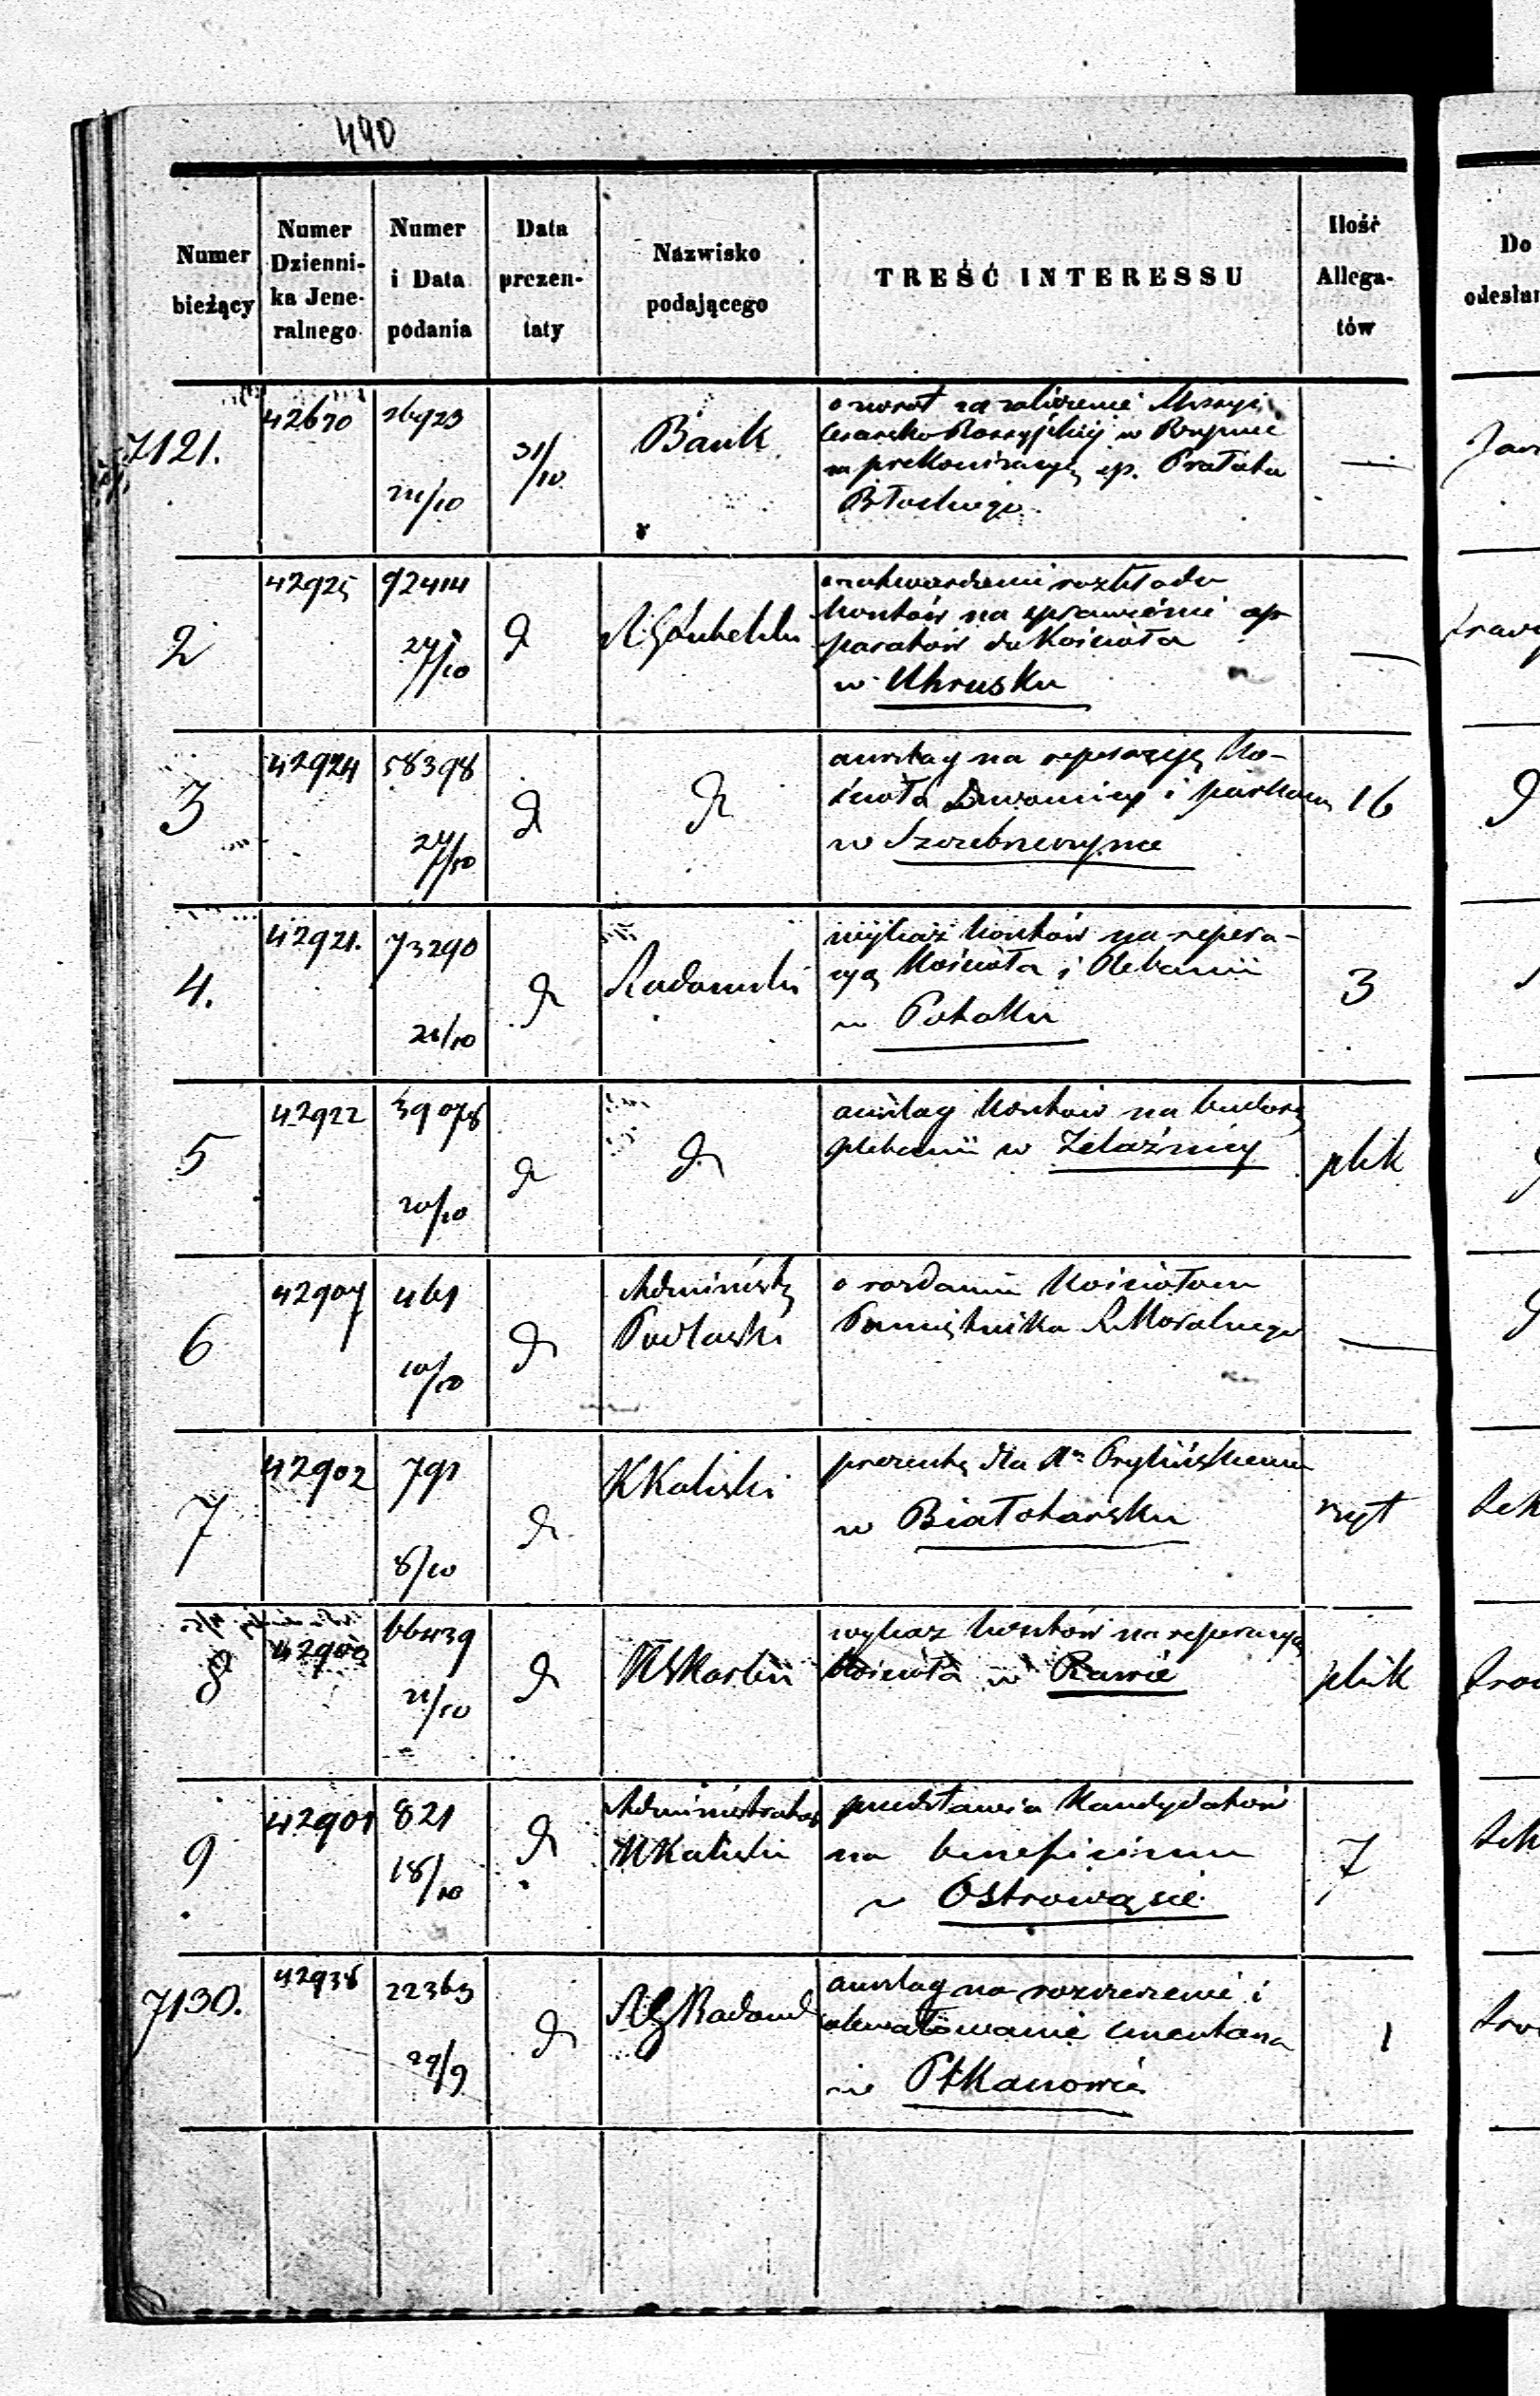 490
Numer bieżący
Numer Dzienni- ka Jene- ralnego
Numer i Data podania
Data prezen- taty
Nazwisko podającego
TREŚĆ INTERESSU
Ilość Allega- tów
Do
7121.
42670
31/10
Bank
o zwrot za zaliczenie Missyi
Cesarsko Rossyjskiej w Rzymie
Prałata
—
2
42925
92414
27/10
rozkładu
kosztów na sprawienie ap-
paratów do Kościoła
w Uhrusku
—
3
42924
58398
27/10
anszlag na reperacyę Ko-
ścioła Dzwonnicy i parkanu
w Szczebrzeszynie
16
4.
42921.
73290
21/10
Radomski
wykaz kosztów na repera-
cyą Kościoła i Plebanii
w Potoku
3
5
42922
39078
20/10
anszlag kosztów na budowę
plebanii w Żelaźnicy
plik
6
42907
461
10/10
Administr
Podlaski
o rozdaniu Kościołom
Pamiętnika R. Moralnego
—
7
42902
791
8/10
K Kaliski
prezentę dla
w Białotarsku
szyt
8
42900
66439
21/10
wykaz kosztów na reperacyą
Kościoła w Rawie
plik
9
42901
821
18/10
Administrator
K Kaliski
przedstawia Kandydatów
na beneficium
w Ostrowąsie
7
7130.
42938
22363
29/9
RG Radoms
anszlag na rozszerzenie i
cmentarza
w Ptkanowie
1